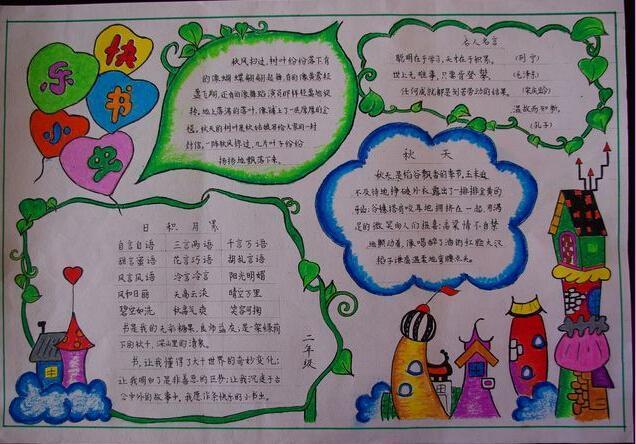 快乐
小书虫
秋风扫过,树叶纷纷落下有
的像蝴蝶翩翩起舞,有的像黄莺轻
盈飞翔,还有的像舞蹈演员那样轻盈地旋
转。地上落满的落叶,像铺上了一层厚厚的金
毯。秋天的树叶是秋姑娘写给大家的一封
封信,一阵秋风掠过,几片叶子纷纷
扬扬地飘落下来。
名人名言
聪明在于学习,天才在于积累。 (列宁)
世上无难事,只要肯登攀。 (毛泽东)
任何成就都是刻苦劳动的结果。 (宋庆龄)
温故而知新。
(孔子)
秋天
秋天,是稻谷飘香的季节,玉米迫
不及待地挣破外衣,露出了一排排金黄的
谷穗搭着咬耳地拥挤在一起,用满
足的微笑向人们报喜;高粱情不自禁
地颤动着,像喝醉了酒的红脸大汉
稻子谦虚温柔地弯腰点头。
日积月累
自言自语 三言两语 千言万语
甜言蜜语 花言巧语 胡言乱语
风言风语 冷言冷语 阳光明媚
风和日丽 天高云淡 晴空万里
碧空如洗 秋高气爽 笑容可掬
书是我的无形糖果,良师益友;是架绿荫
下的秋千,深山里的清泉。
书,让我懂得了大千世界的奇妙变化;
让我明白了是非善恶的界势;让我沉迷于古
今中外的故事中。我愿作条快乐的小书虫。
二年级